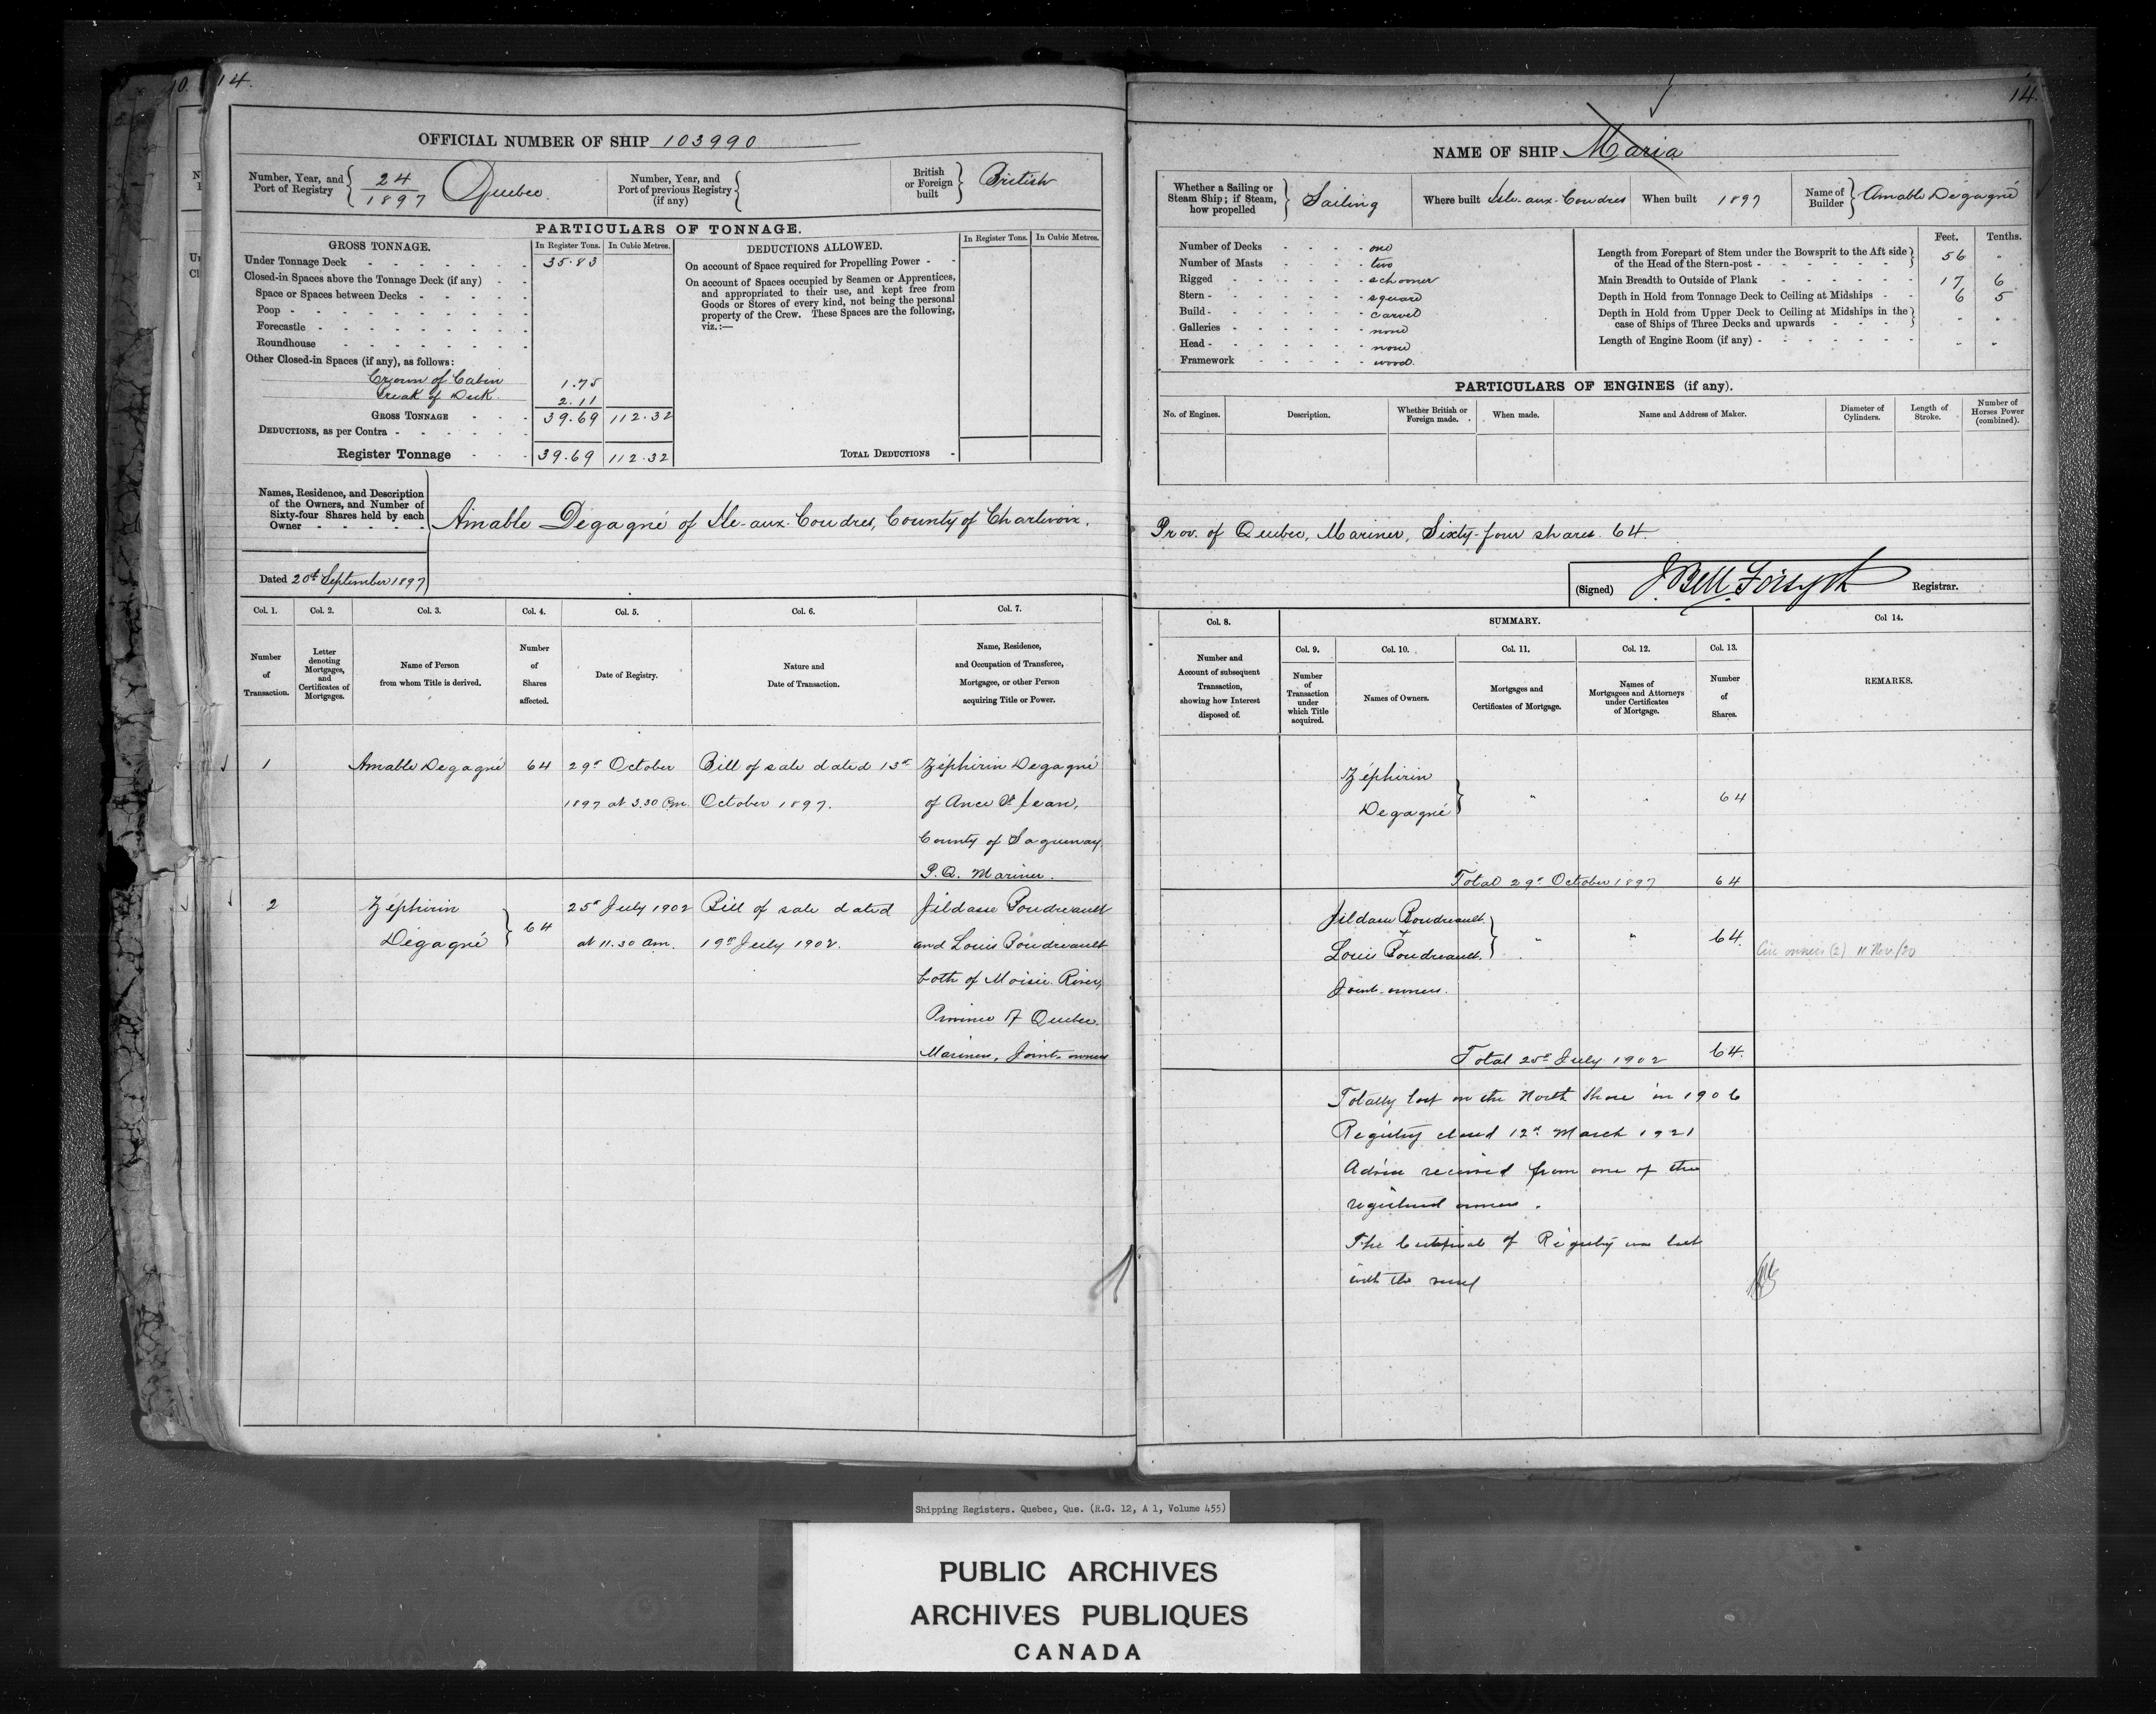 14.
OFFICIAL NUMBER OF SHIP 103990
Number, Year, and Port of Registry 24/1897 Quebec.
Number, Year, and Port of previous Registry (if any)
British or Foreign built British
PARTICULARS OF TONNAGE.
GROSS TONNAGE. In Register Tons. In Cubic Metres.
Under Tonnage Deck 35.83
Closed-in Spaces above the Tonnage Deck (if any)
Space or Spaces between Decks
Poop
Forecastle
Roundhouse
Other Closed-in Spaces (if any), as follows:
Crown of Cabin 1.75
Break of Deck. 2.11
GROSS TONNAGE 39.69 112.32
DEDUCTIONS, as per Contra
Register Tonnage 39.69 112.32
DEDUCTIONS ALLOWED. In Register Tons. In Cubic Metres.
On account of Space required for Propelling Power
On account of Spaces occupied by Seamen or Apprentices,
and appropriated to their use, and kept free from
Goods or Stores of every kind, not being the personal
property of the Crew. These Spaces are the following,
viz.:—
TOTAL DEDUCTIONS
Names, Residence, and Description
of the Owners, and Number of
Sixty-four Shares held by each
Owner
Amable Degagné of Ile-aux-Coudres, County of Charlevoix,
Dated 20th September 1897
Col. 1. Col. 2. Col. 3. Col. 4. Col. 5. Col. 6. Col. 7.
Number of Transaction.
Letter denoting Mortgages, and Certificates of Mortgages.
Name of Person from whom Title is derived.
Number of Shares affected.
Date of Registry.
Nature and Date of Transaction.
Name, Residence, and Occupation of Transferee, Mortgagee, or other Person acquiring Title or Power.
1 Amable Degagné 64 29th October Bill of sale dated 13th Zéphirin Degagné
1897 at 3.30 Pm. October 1897. of Ance St Jean,
County of Saguenay,
P.Q. Mariner.
2 Zéphirin 64 25th July 1902 Bill of sale dated Jildasse Boudreault
Dégagné at 11.30 am. 19th July 1902. and Louis Boudreault
both of Moisie River,
Province of Quebec.
Mariners, Joint owners
14.
NAME OF SHIP Maria
Whether a Sailing or Steam Ship; if Steam, how propelled Sailing
Where built Isle-aux-Coudres
When built 1897
Name of Builder Amable Dégagné
Number of Decks one
Number of Masts two
Rigged schooner
Stern square
Build carvel
Galleries none
Head none
Framework wood.
Feet. Tenths.
Length from Forepart of Stem under the Bowsprit to the Aft side
of the Head of the Stern-post 56 "
Main Breadth to Outside of Plank 17 6
Depth in Hold from Tonnage Deck to Ceiling at Midships 6 5
Depth in Hold from Upper Deck to Ceiling at Midships in the
case of Ships of Three Decks and upwards " "
Length of Engine Room (if any) " "
PARTICULARS OF ENGINES (if any).
No. of Engines. Description. Whether British or Foreign made. When made. Name and Address of Maker. Diameter of Cylinders. Length of Stroke. Number of Horses Power (combined).
Prov. of Quebec, Mariner, Sixty-four shares. 64.
(Signed) J. Bell Forsyth Registrar.
Col. 8. SUMMARY. Col 14.
Col. 9. Col. 10. Col. 11. Col. 12. Col. 13.
Number and Account of subsequent Transaction, showing how Interest disposed of.
Number of Transaction under which Title acquired.
Names of Owners.
Mortgages and Certificates of Mortgage.
Names of Mortgagees and Attorneys under Certificates of Mortgage.
Number of Shares.
REMARKS.
Zéphirin
Degagné " " 64
Total 29th October 1897 64
Jildasse Boudreault
+
Louis Boudreault. " " 64.
Joint-owners.
owners (2) 11 Nov./20
Total 25th July 1902 64.
Totally lost on the North Shore in 1906
Registry closed 12th March 1921
Advice received from one of the
registered owners.
The Certificate of Registry was lost
with the vessel
Shipping Registers. Quebec, Que. (R.G. 12, A 1, Volume 455)
PUBLIC ARCHIVES
ARCHIVES PUBLIQUES
CANADA